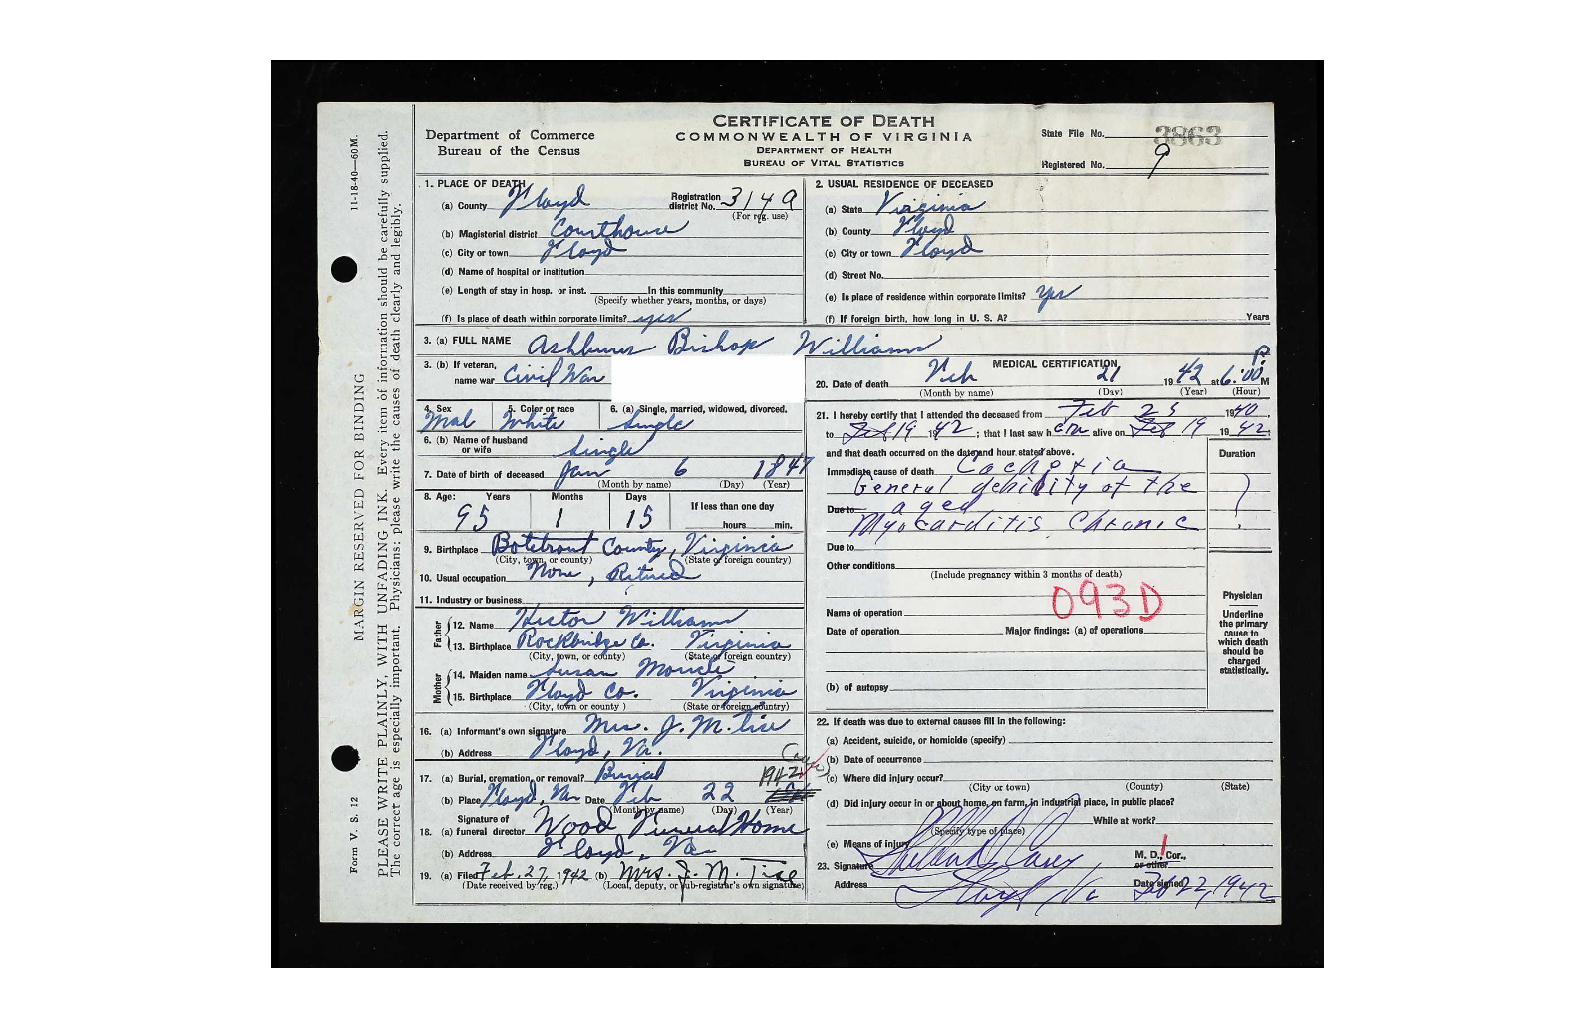 11-18-40—60M.
MARGIN RESERVED FOR BINDING
PLEASE WRITE PLAINLY, WITH UNFADING INK. Every item of information should be carefully supplied.
The correct age is especially important. Physicians: please write the causes of death clearly and legibly.
Form V. S. 12
Department of Commerce
Bureau of the Census
CERTIFICATE OF DEATH
COMMONWEALTH OF VIRGINIA
DEPARTMENT OF HEALTH
BUREAU OF VITAL STATISTICS
State File No. 3863
Registered No. 9
1. PLACE OF DEATH
(a) County Floyd Registration district No. 3149
(For reg. use)
(b) Magisterial district Courthouse
(c) City or town Floyd
(d) Name of hospital or institution
(e) Length of stay in hosp. or inst. In this community
(Specify whether years, months, or days)
(f) Is place of death within corporate limits? yes
2. USUAL RESIDENCE OF DECEASED
(a) State Virginia
(b) County Floyd
(c) City or town Floyd
(d) Street No.
(e) Is place of residence within corporate limits? Yes
(f) If foreign birth, how long in U. S. A? Years
3. (a) FULL NAME Bishop Williams
3. (b) If veteran, name war Civil War
4. Sex 5. Color or race 6. (a) Single, married, widowed, divorced.
Mal White Single
6. (b) Name of husband or wife Single
7. Date of birth of deceased Jan 6 1847
(Month by name) (Day) (Year)
8. Age: Years Months Days If less than one day
95 1 15 hours min.
9. Birthplace Botetrout County, Virginia
(City, town, or county) (State or foreign country)
10. Usual occupation None, Retired
11. Industry or business
Father
12. Name Williams
13. Birthplace Rockbridge Co. Virginia
(City, town, or county) (State or foreign country)
Mother
14. Maiden name Susan
15. Birthplace Floyd Co. Virginia
(City, town or county ) (State or foreign country)
16. (a) Informant's own signature Mrs. J. M. Tise
(b) Address Floyd, Va.
17. (a) Burial, cremation, or removal? Burial
(b) Place Floyd, Va Date Feb 22 1942
(Month by name) (Day) (Year)
18. Signature of
(a) funeral director Wood Funeral Home
(b) Address Floyd, Va
19. (a) Filed Feb. 27, 1942 (b) Mrs. J. M. Tise
(Date received by reg.) (Local, deputy, or sub-registrar's own signature)
MEDICAL CERTIFICATION
20. Date of death Feb 21 1942 at 6:00 P. M
(Month by name) (Day) (Year) (Hour)
21. I hereby certify that I attended the deceased from Feb 25 1940,
to Feb 19 1942; that I last saw h im alive on Feb 19 1942,
and that death occurred on the date and hour stated above.
Duration
Immediate cause of death Cachexia
General debility of the
Due to aged
Myocarditis Chronic
Due to
Other conditions
(Include pregnancy within 3 months of death)
093D
Name of operation
Date of operation Major findings: (a) of operations
(b) of autopsy
Physician
Underline
the primary
cause to
which death
should be
charged
statistically.
22. If death was due to external causes fill in the following:
(a) Accident, suicide, or homicide (specify)
(b) Date of occurrence
(c) Where did injury occur?
(City or town) (County) (State)
(d) Did injury occur in or about home, on farm, in industrial place, in public place?
While at work?
(Specify type of place)
(e) Means of injury
23. Signature M. D., Cor.,
or other
Address Floyd Va Date signed Feb 22, 1942